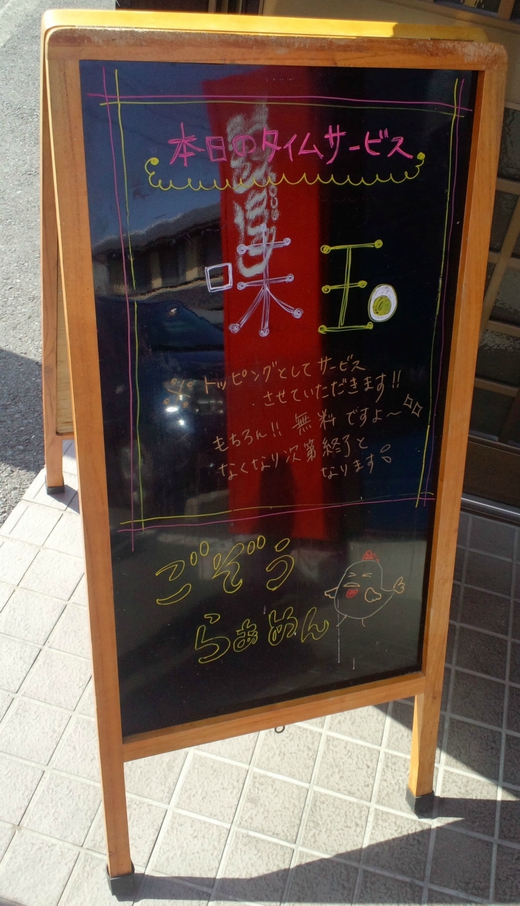 本日のタイムサービス
味玉
トッピングとしてサービス
させていただきます!!
もちろん!! 無料ですよ〜
なくなり次第終了と
なります
ごぞう
らぁめん